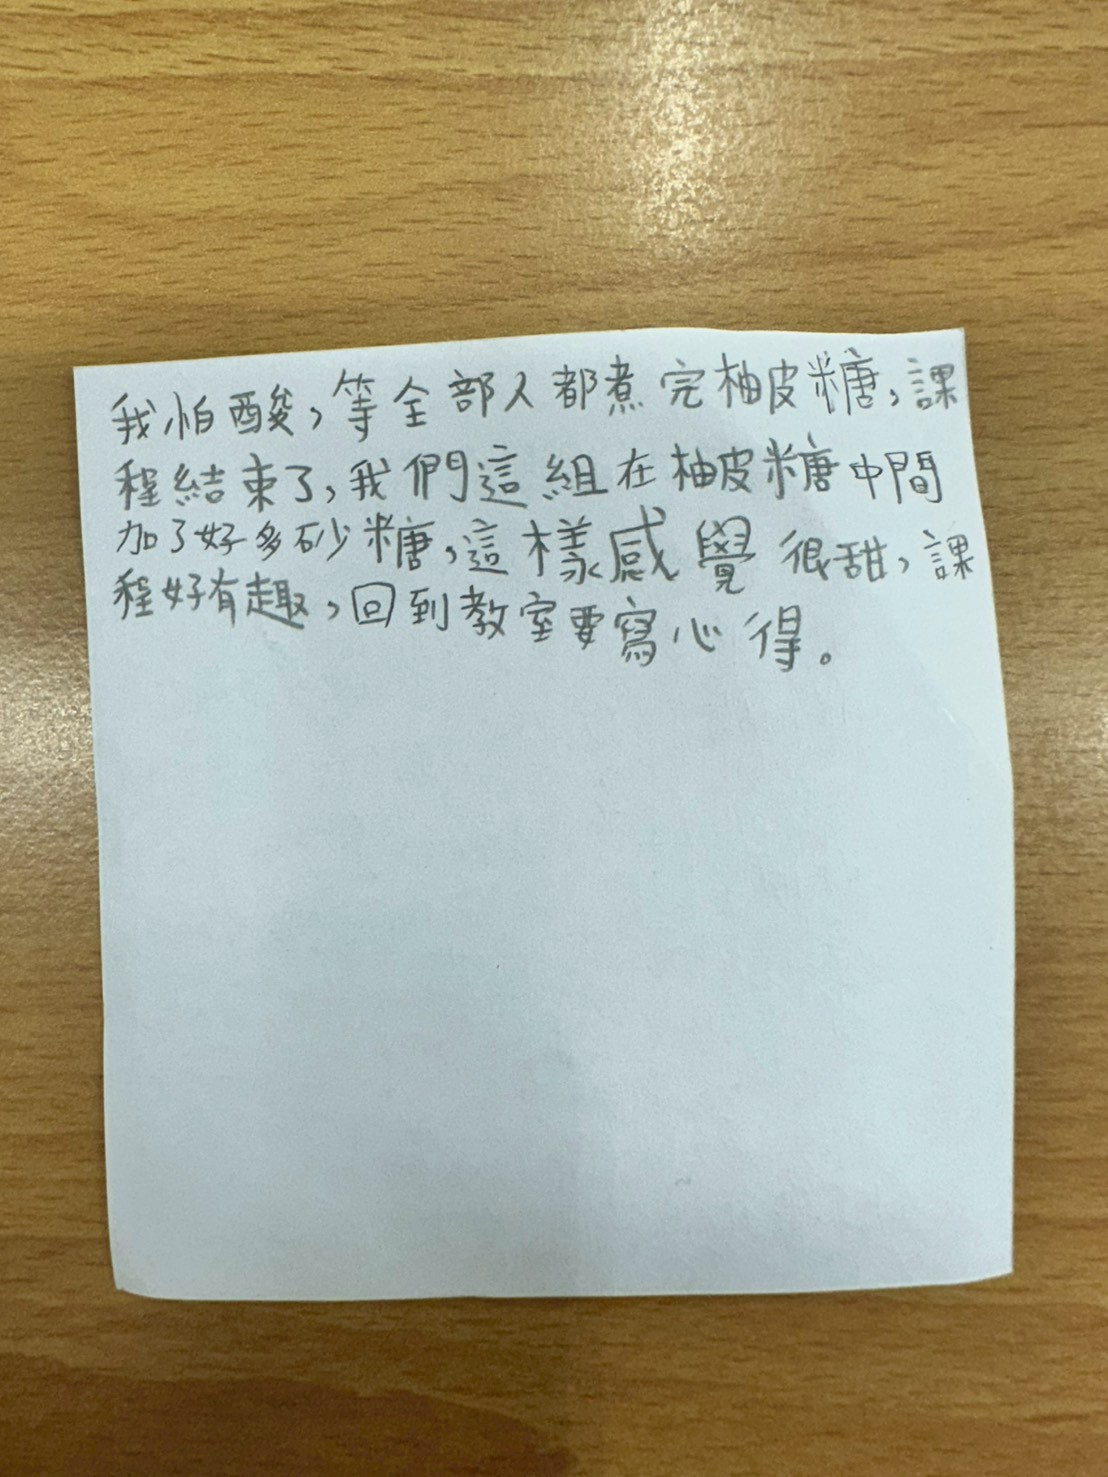 我怕酸,等全部人都煮完柚皮糖,課
程結束了,我們這組在柚皮糖中間
加了好多砂糖,這樣感覺很甜,課
程好有趣,回到教室要寫心得。